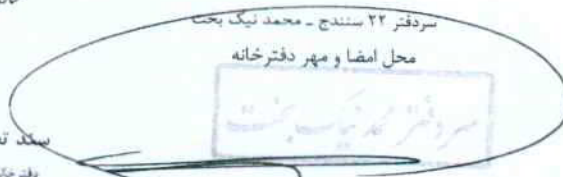 سردفتر ۲۲ سنندج - محمد نیک بخت
محل امضا و مهر دفترخانه
سردفتر محمد نیک بخت
سند